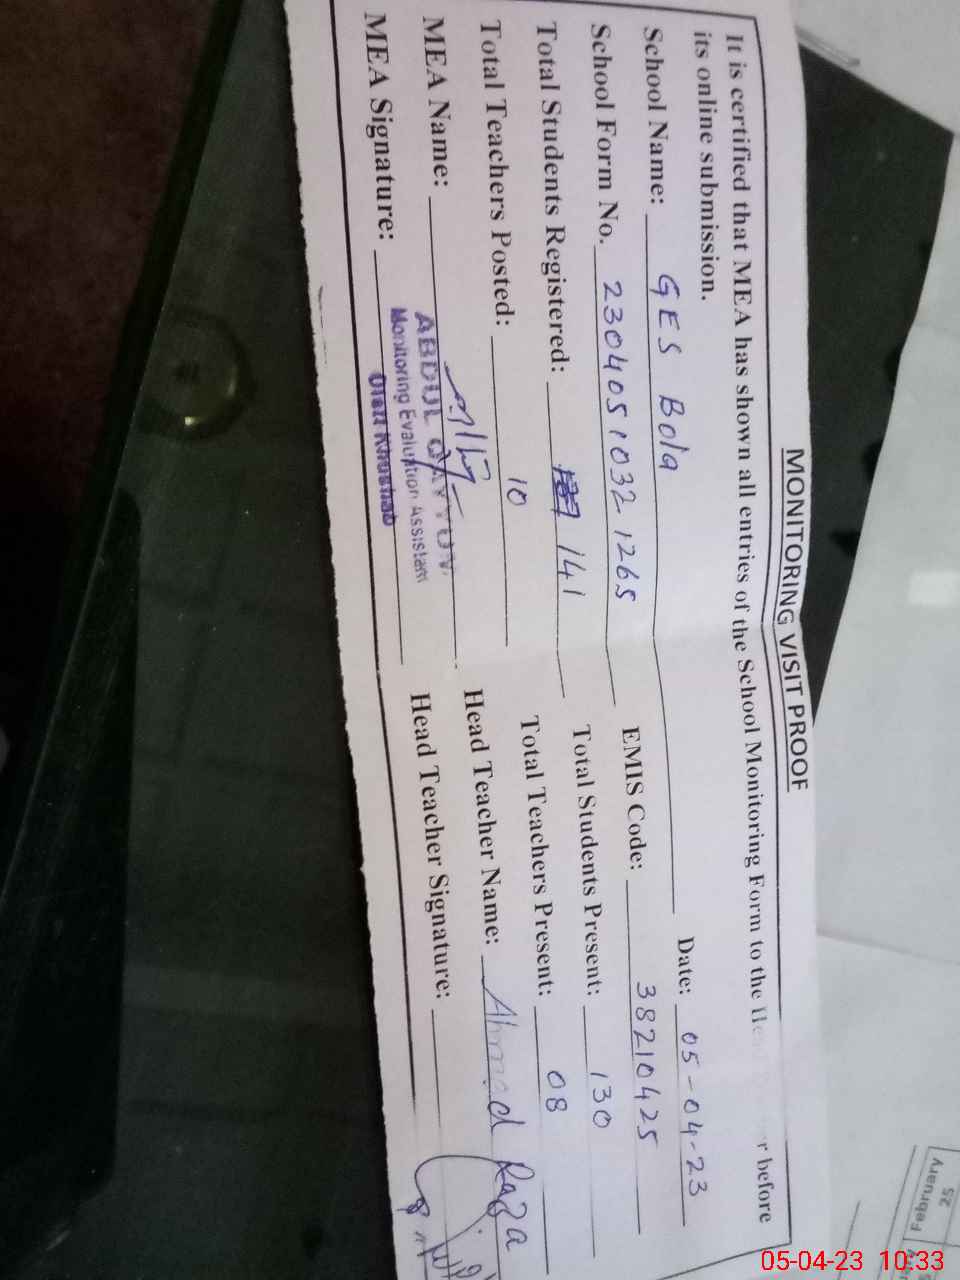 MONITORING VISIT PROOF
It is certified that MEA has shown all entries of the School Monitoring Form to the before
its online submission.
School Name: GES Bola Date: 05-04-23
School Form No. 23040510321265 EMIS Code: 38210425
Total Students Registered: 141 Total Students Present: 130
Total Teachers Posted: 10 Total Teachers Present: 08
MEA Name: Head Teacher Name: Ahmad Raza
ABDUL QAYYUM
Monitoring Evaluation Assistant
Distt Khushab
MEA Signature: Head Teacher Signature:
25
February
05-04-23 10:33